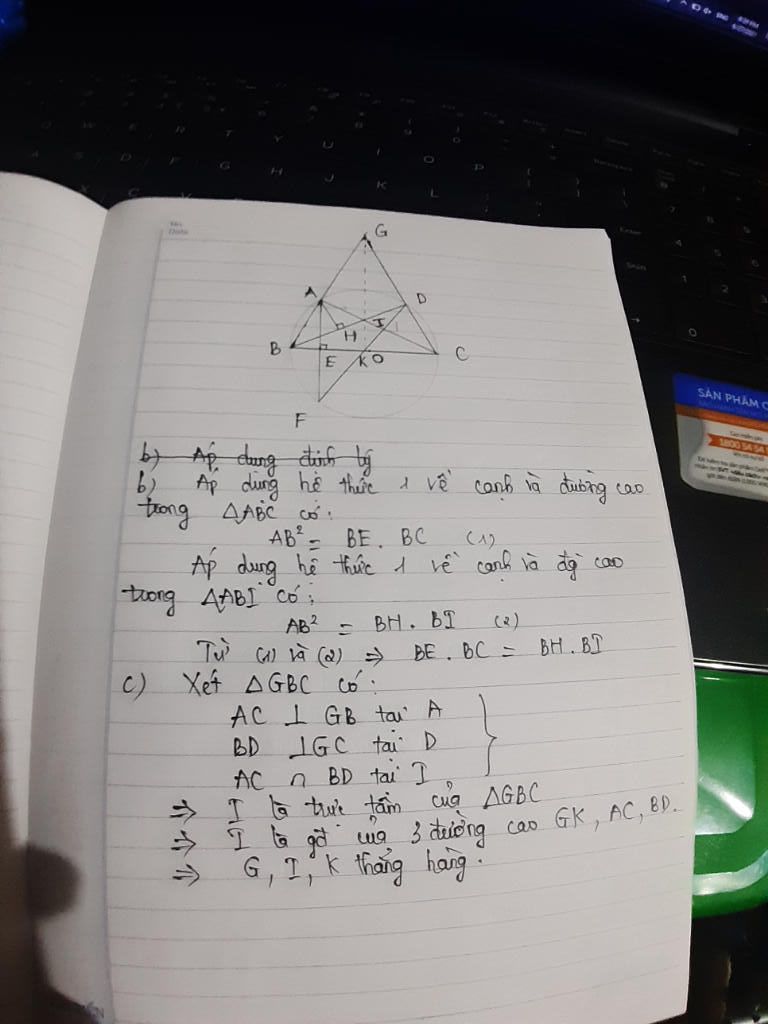 G
A
D
H
I
B
E
K
O
C
F
b) Áp dụng định lý
b) Áp dụng hệ thức 1 về cạnh và đường cao
trong △ABC có:
AB² = BE. BC (1)
Áp dụng hệ thức 1 về cạnh và đg cao
trong △ABI có:
AB² = BH. BI (2)
Từ (1) và (2) ⇒ BE. BC = BH. BI
c) Xét △GBC có:
AC ⊥ GB tại A
BD ⊥ GC tại D
AC ∩ BD tại I
⇒ I là trực tâm của △GBC
⇒ I là gđ của 3 đường cao GK, AC, BD.
⇒ G, I, K thẳng hàng.
SẢN PHẨM C
1800 54 54